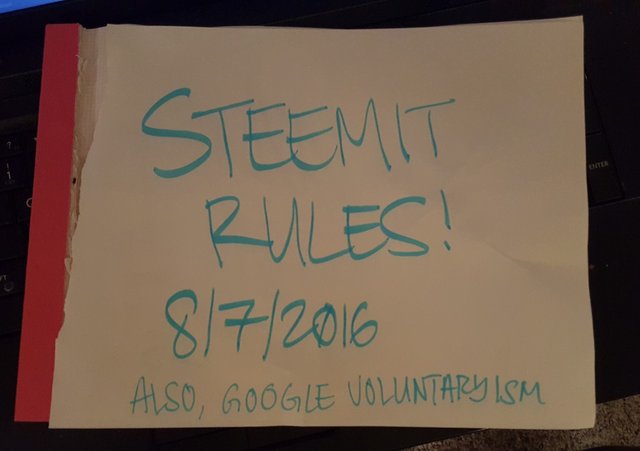 STEEMIT
RULES!
8/7/2016
ALSO, GOOGLE VOLUNTARYISM
ENTER